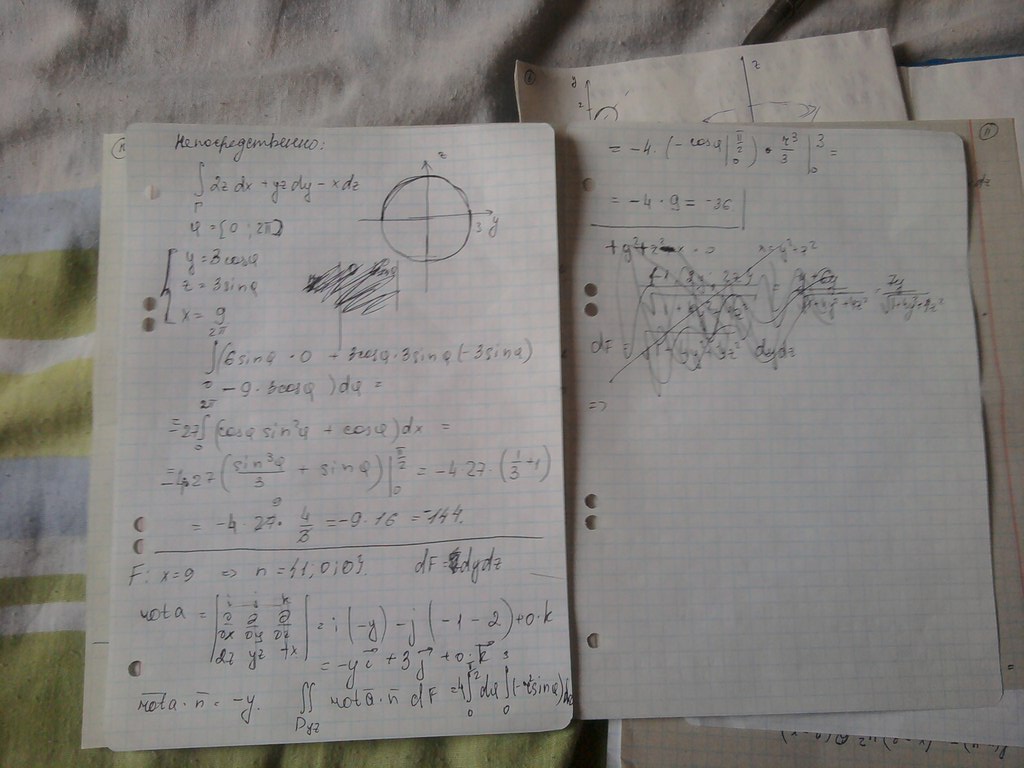 Непосредственно:
∫ 2z dx + yz dy − x dz
Γ
φ = [0; 2π]
y = 3cosφ
z = 3sinφ
x = 9
z
3 y
2π
∫ (6sinφ · 0 + 3cosφ · 3sinφ (−3sinφ)
0
− 9 · 3cosφ) dφ =
= −27 ∫ (cosφ sin²φ + cosφ) dx =
= −4·27 (sin³φ/3 + sinφ) |₀^{π/2} = −4·27·(1/3 + 1)
= −4 · 27 · 4/3 = −9 · 16 = −144.
F: x = 9 ⇒ n = {1, 0; 0}. dF = dydz
rot a = | i j k |
| ∂/∂x ∂/∂y ∂/∂z | = i(−y) − j(−1 − 2) + 0·k
| 2z yz −x |
= −y i + 3 j + 0·k
rot a · n = −y. ∬ rot a · n dF = 4 ∫₀^{π/2} dφ ∫₀³ (−r² sinφ) dr
Dyz
= −4 · (−cosφ |₀^{π/2}) · r³/3 |₀³ =
= −4 · 9 = −36
+ y² + z² − x = 0 x = y² + z²
dF = dydz
=>
11
y
z
z